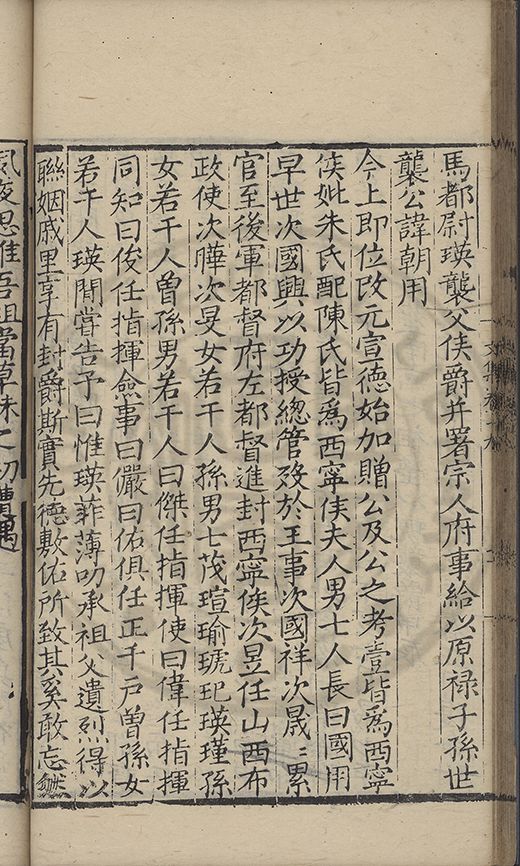 馬都尉瑛襲父侯爵并署宗人府事給以原祿子孫世
襲公諱朝用
今上即位改元宣德始加贈公及公之考壹皆爲西寧
侯妣朱氏配陳氏皆爲西寧侯夫人男七人長曰國用
早世次國興以功授總管歿於王事次國祥次晟〻累
官至後軍都督府左都督進封西寧侯次昱任山西布
政使次曄次旻女若干人孫男七茂瑄瑜琥玘瑛瑾孫
女若干人曾孫男若干人曰傑任指揮使曰偉任指揮
同知曰俊任指揮僉事曰儼曰佑俱任正千戶曾孫女
若干人瑛間嘗告予曰惟瑛菲薄叨承祖父遺烈得以
聯姻戚里享有封爵斯實先德敷佑所致其奚敢忘然
夙夜思惟吾祖當草昧之初遭遇